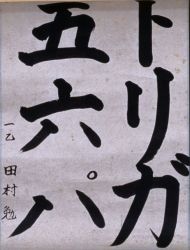 トリガ
五六。八
一乙 田村勉